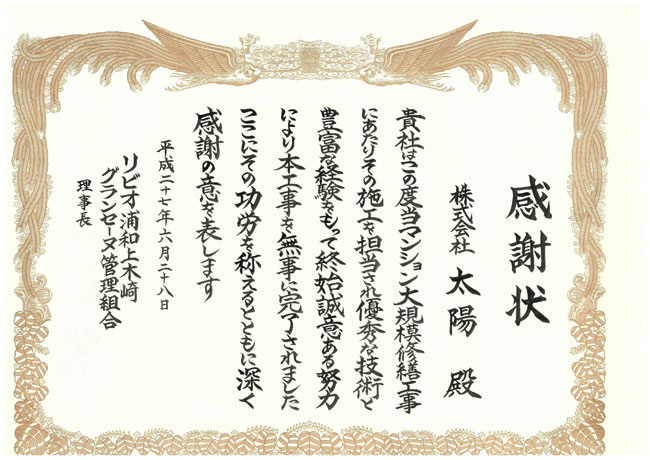 感謝状
株式会社 太陽 殿
貴社はこの度当マンション大規模修繕工事
にあたりその施工を担当され優秀な技術と
豊富な経験をもって終始誠意ある努力
により本工事を無事に完了されました
ここにその功労を称えるとともに深く
感謝の意を表します
平成二十七年六月二十八日
リビオ浦和上木崎
グランセーヌ管理組合
理事長